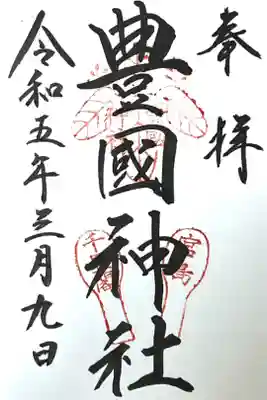 奉拝
豊國神社
宮島
千畳閣
令和五年三月九日